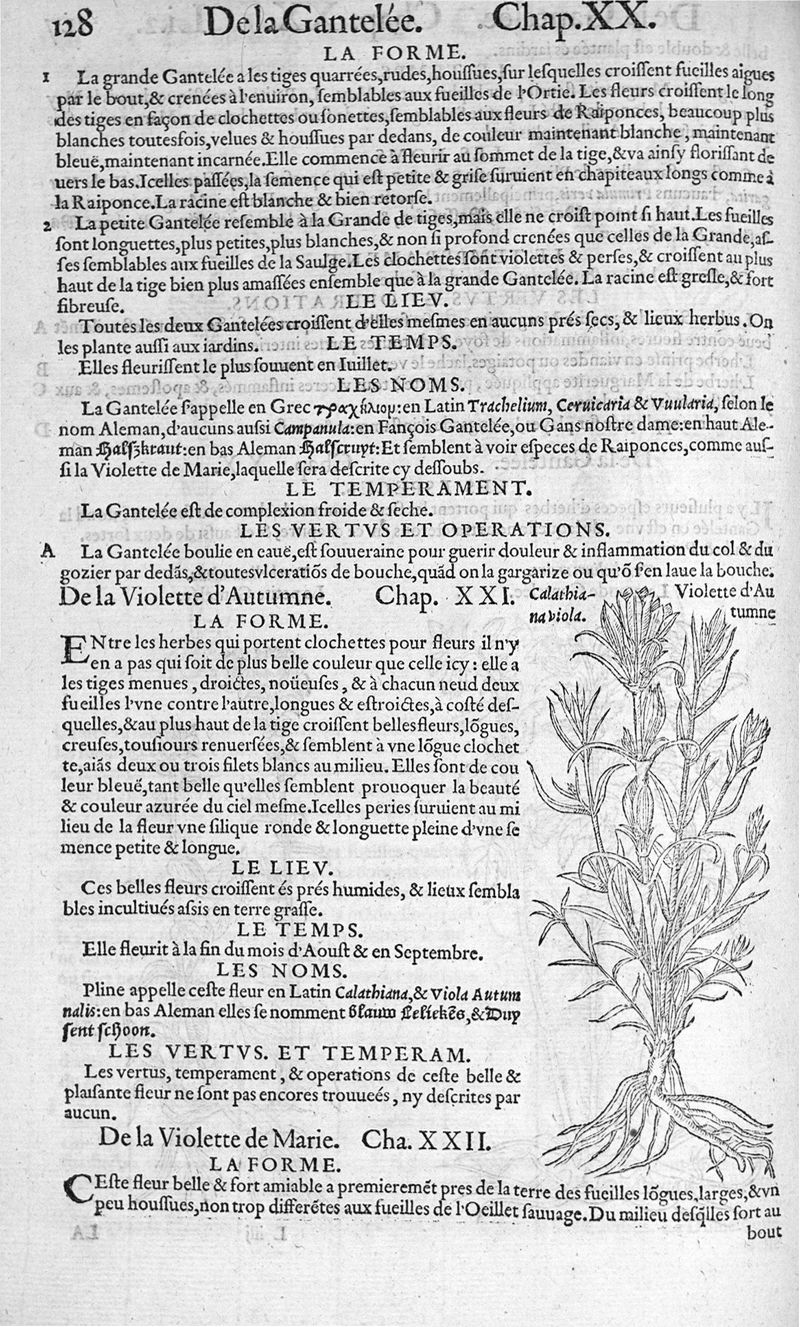 128 De la Gantelée. Chap. XX.
LA FORME.
1 La grande Gantelée a les tiges quarrées, rudes, houſſues, ſur leſquelles croiſſent fueilles aigues
par le bout, & crenées à l'enuiron, ſemblables aux fueilles de l'Ortie. Les fleurs croiſſent le long
des tiges en façon de clochettes ou ſonettes, ſemblables aux fleurs de Raiponces, beaucoup plus
blanches toutesfois, velues & houſſues par dedans, de couleur maintenant blanche, maintenant
bleuë, maintenant incarnée. Elle commence à fleurir au ſommet de la tige, & va ainſy floriſſant de
uers le bas. Icelles paſſées, la ſemence qui eſt petite & griſe ſuruient en chapiteaux longs comme à
la Raiponce. La racine eſt blanche & bien retorſe.
2 La petite Gantelée reſemble à la Grande de tiges, mais elle ne croiſt point ſi haut. Les fueilles
ſont longuettes, plus petites, plus blanches, & non ſi profond crenées que celles de la Grande, aſ-
ſes ſemblables aux fueilles de la Saulge. Les clochettes ſont violettes & perſes, & croiſſent au plus
haut de la tige bien plus amaſſées enſemble que à la grande Gantelée. La racine eſt greſle, & fort
fibreuſe.
LE LIEV.
Toutes les deux Gantelées croiſſent d'elles meſmes en aucuns prés ſecs, & lieux herbus. On
les plante auſſi aux iardins.
LE TEMPS.
Elles fleuriſſent le plus ſouuent en Iuillet.
LES NOMS.
La Gantelée ſ'appelle en Grec τραχήλιομ: en Latin Trachelium, Ceruicaria & Vuularia, ſelon le
nom Aleman, d'aucuns auſsi Campanula: en Fançois Gantelée, ou Gans noſtre dame: en haut Ale-
man Halſzkraut: en bas Aleman Halſcruyt: Et ſemblent à voir eſpeces de Raiponces, comme auſ-
ſi la Violette de Marie, laquelle ſera deſcrite cy deſſoubs.
LE TEMPERAMENT.
La Gantelée eſt de complexion froide & ſeche.
LES VERTVS ET OPERATIONS.
A La Gantelée boulie en eauë, eſt ſouueraine pour guerir douleur & inflammation du col & du
gozier par dedãs, & toutes vlceratiõs de bouche, quãd on la gargarize ou qu'õ ſ'en laue la bouche.
De la Violette d'Autumne. Chap. XXI.
Calathia-
na viola.
Violette d'Au
tumne
LA FORME.
ENtre les herbes qui portent clochettes pour fleurs il n'y
en a pas qui ſoit de plus belle couleur que celle icy: elle a
les tiges menues, droictes, noüeuſes, & à chacun neud deux
fueilles l'vne contre l'autre, longues & eſtroictes, à coſté deſ-
quelles, & au plus haut de la tige croiſſent belles fleurs, lõgues,
creuſes, touſiours renuerſées, & ſemblent à vne lõgue clochet
te, aiãs deux ou trois filets blancs au milieu. Elles ſont de cou
leur bleuë, tant belle qu'elles ſemblent prouoquer la beauté
& couleur azurée du ciel meſme. Icelles peries ſuruient au mi
lieu de la fleur vne ſilique ronde & longuette pleine d'vne ſe
mence petite & longue.
LE LIEV.
Ces belles fleurs croiſſent és prés humides, & lieux ſembla
bles incultiués aſsis en terre graſſe.
LE TEMPS.
Elle fleurit à la fin du mois d'Aouſt & en Septembre.
LES NOMS.
Pline appelle ceſte fleur en Latin Calathiana, & Viola Autum
nalis: en bas Aleman elles ſe nomment Blauw Leliekẽs, & Duy
ſent ſchoon.
LES VERTVS. ET TEMPERAM.
Les vertus, temperament, & operations de ceſte belle &
plaiſante fleur ne ſont pas encores trouueés, ny deſcrites par
aucun.
De la Violette de Marie. Cha. XXII.
LA FORME.
CEſte fleur belle & fort amiable a premieremẽt pres de la terre des fueilles lõgues, larges, & vn
peu houſſues, non trop differẽtes aux fueilles de l'Oeillet ſauuage. Du milieu deſq̃lles ſort au
bout